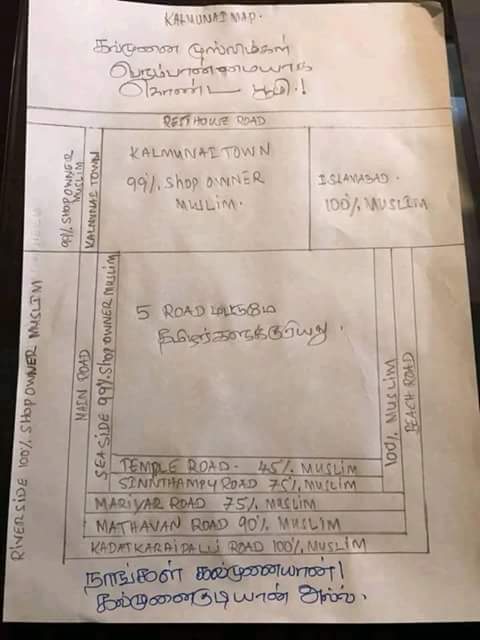 KALMUNAI MAP.
கல்முனை முஸ்லிம்கள்
பெரும்பான்மையாக
கொண்ட பூமி.!
REST HOUSE ROAD
99% SHOP OWNER
MUSLIM
KALMUNAI TOWN
KALMUNAI TOWN
99% SHOP OWNER
MUSLIM.
ISLAMABAD.
100% MUSLIM
RIVERSIDE 100% SHOP OWNER MUSLIM
MAIN ROAD
SEA SIDE 99% SHOP OWNER MUSLIM
5 ROAD மட்டுமே
தமிழர்களுக்குரியது.
100% MUSLIM
BEACH ROAD
TEMPLE ROAD - 45% MUSLIM
SINNTHAMPY ROAD 75% MUSLIM
MARIYAR ROAD 75% MUSLIM
MATHAVAN ROAD 90% MUSLIM
KADATKARAIPALLI ROAD 100% MUSLIM
நாங்கள் கல்முனையான்!
கல்முனைகுடியான் அல்ல.